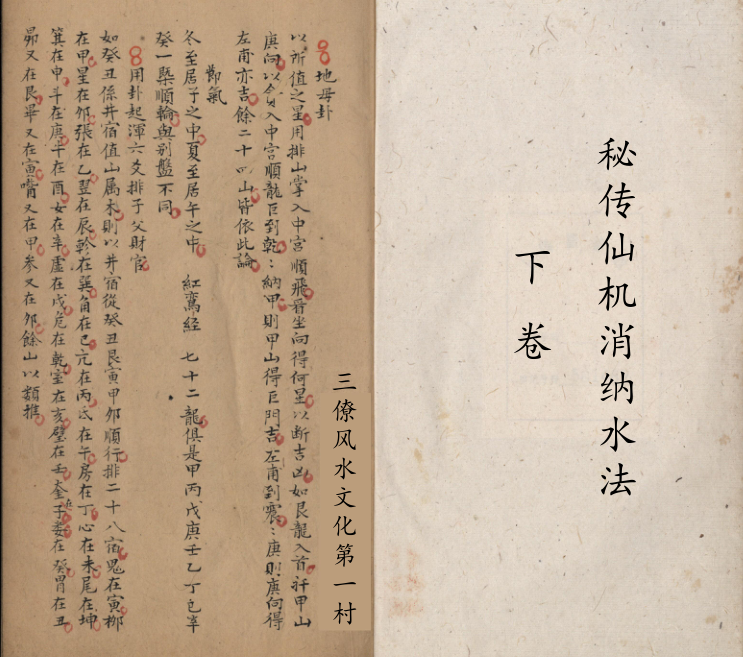 秘传仙机消纳水法
下卷
三僚风水文化第一村
地母卦
以所值之星用排山掌入中宮順飛看坐向得何星以断吉凶如艮龍入首扦甲山
庚向以貪入中宮順龍巨到乾納甲則甲山得巨門吉左甫到震庚則庚向得
左甫亦吉餘二十四山皆依此論
節氣
冬至居子之中夏至居午之中 紅鸞経 七十二龍俱是甲丙戊庚壬乙丁己辛
癸一槩順輪與别盤不同
用卦起渾六爻排子父財官
如癸丑係井宿值山属木則以井宿從癸丑艮寅甲卯順行排二十八宿鬼在寅柳
在甲星在卯張在乙翌在辰軫在巽角在巳亢在丙氐在午房在丁心在未尾在坤
箕在申斗在庚牛在酉女在辛虚在戌危在乾室在亥壁在壬奎子婁在癸胃在丑
昴又在艮畢又在寅嘴又在甲参又在卯餘山以類推